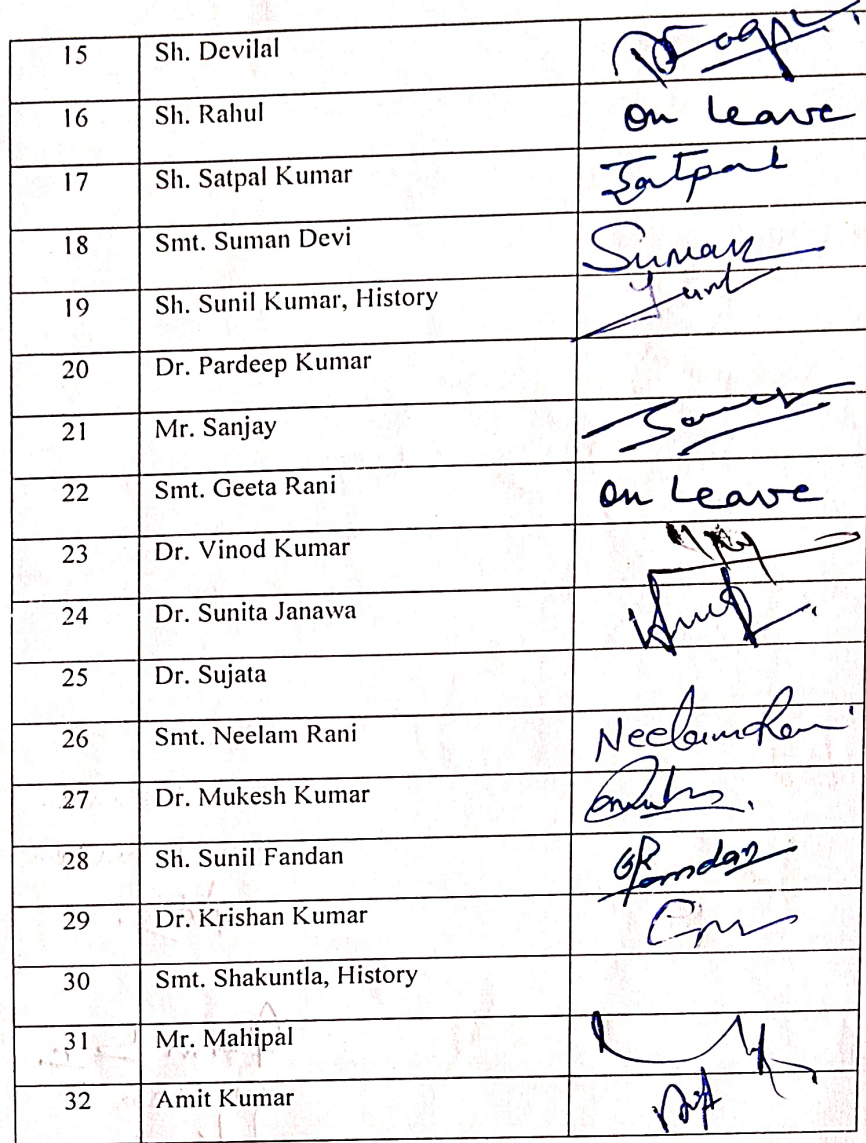 15 Sh. Devilal
16 Sh. Rahul On Leave
17 Sh. Satpal Kumar Satpal
18 Smt. Suman Devi Suman
19 Sh. Sunil Kumar, History
20 Dr. Pardeep Kumar
21 Mr. Sanjay
22 Smt. Geeta Rani On Leave
23 Dr. Vinod Kumar
24 Dr. Sunita Janawa
25 Dr. Sujata
26 Smt. Neelam Rani Neelam Rani
27 Dr. Mukesh Kumar
28 Sh. Sunil Fandan
29 Dr. Krishan Kumar
30 Smt. Shakuntla, History
31 Mr. Mahipal
32 Amit Kumar